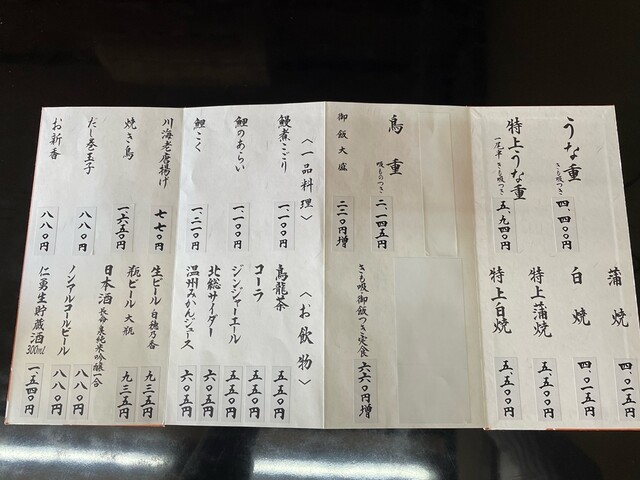 うな重 きも吸つき 四、四〇〇円
特上うな重 一尾半 きも吸つき 五、九四〇円
蒲焼 四、〇一五円
白焼 四、〇一五円
特上蒲焼 五、五〇〇円
特上白焼 五、五〇〇円
鳥重 吸ものつき 二、一四五円
御飯大盛 二二〇円増
きも吸・御飯つき定食 六六〇円増
〈一品料理〉
鰻煮こごり 一、一〇〇円
鯉のあらい 一、一〇〇円
鯉こく 一、二一〇円
川海老唐揚げ 七七〇円
焼き鳥 一、六五〇円
だし巻玉子 八八〇円
お新香 八八〇円
〈お飲物〉
烏龍茶 五五〇円
コーラ 五五〇円
ジンジャーエール 五五〇円
北総サイダー 六〇五円
温州みかんジュース 六〇五円
生ビール 白穂乃香 九三五円
瓶ビール 大瓶 九三五円
日本酒 長命泉純米吟醸一合 八八〇円
ノンアルコールビール 八八〇円
仁勇生貯蔵酒 300ml 一、五四〇円